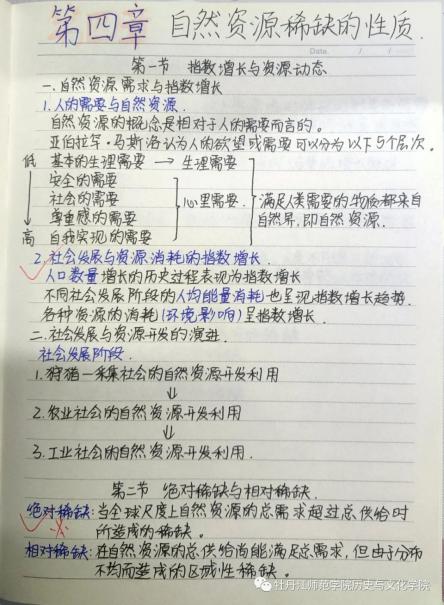 第四章 自然资源稀缺的性质.
Date. / /
第一节 指数增长与资源动态
一.自然资源需求与指数增长
1.人的需要与自然资源.
自然资源的概念是相对于人的需要而言的。
亚伯拉罕·马斯洛认为人的欲望或需要可以分为以下5个层次.
低 基本的生理需要 → 生理需要
安全的需要
社会的需要 心里需要 满足人类需要的物质都来自
尊重感的需要 自然界,即自然资源.
高 自我实现的需要
2.社会发展与资源消耗的指数增长.
人口数量增长的历史过程表现为指数增长
不同社会发展阶段的人均能量消耗也呈现指数增长趋势.
各种资源的消耗(环境影响)呈指数增长.
二.社会发展与资源开发的演进.
社会发展阶段.
1.狩猎—采集社会的自然资源开发利用
⇓
2.农业社会的自然资源开发利用
⇓
3.工业社会的自然资源开发利用.
第二节 绝对稀缺与相对稀缺.
绝对稀缺:当全球尺度上自然资源的总需求超过总供给时
所造成的稀缺。
相对稀缺:在自然资源的总供给尚能满足总需求,但由于分布
不均而造成的区域性稀缺。
牡丹江师范学院历史与文化学院